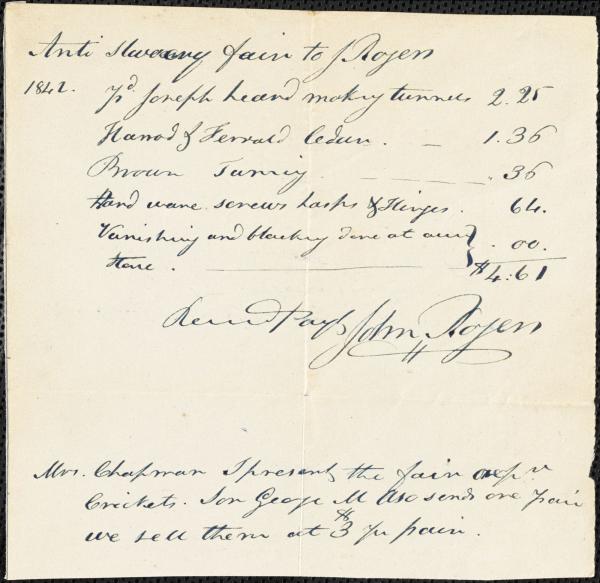 Anti Slavery fair to J Rogers
1842. Pd. Joseph heard making tunnels 2.25
Harrod & Ferrald Cedar. — 1.36
Brown Turning. — .36
Hard ware screws hasps & Hinges. 64.
Varnishing and blacking done at our } .00.
Store. — $4.61
Recd Payt John Rogers
Mrs. Chapman I present the fair one pr
Crickets. Son George M also sends one pair
we sell them at $3 pr pair.